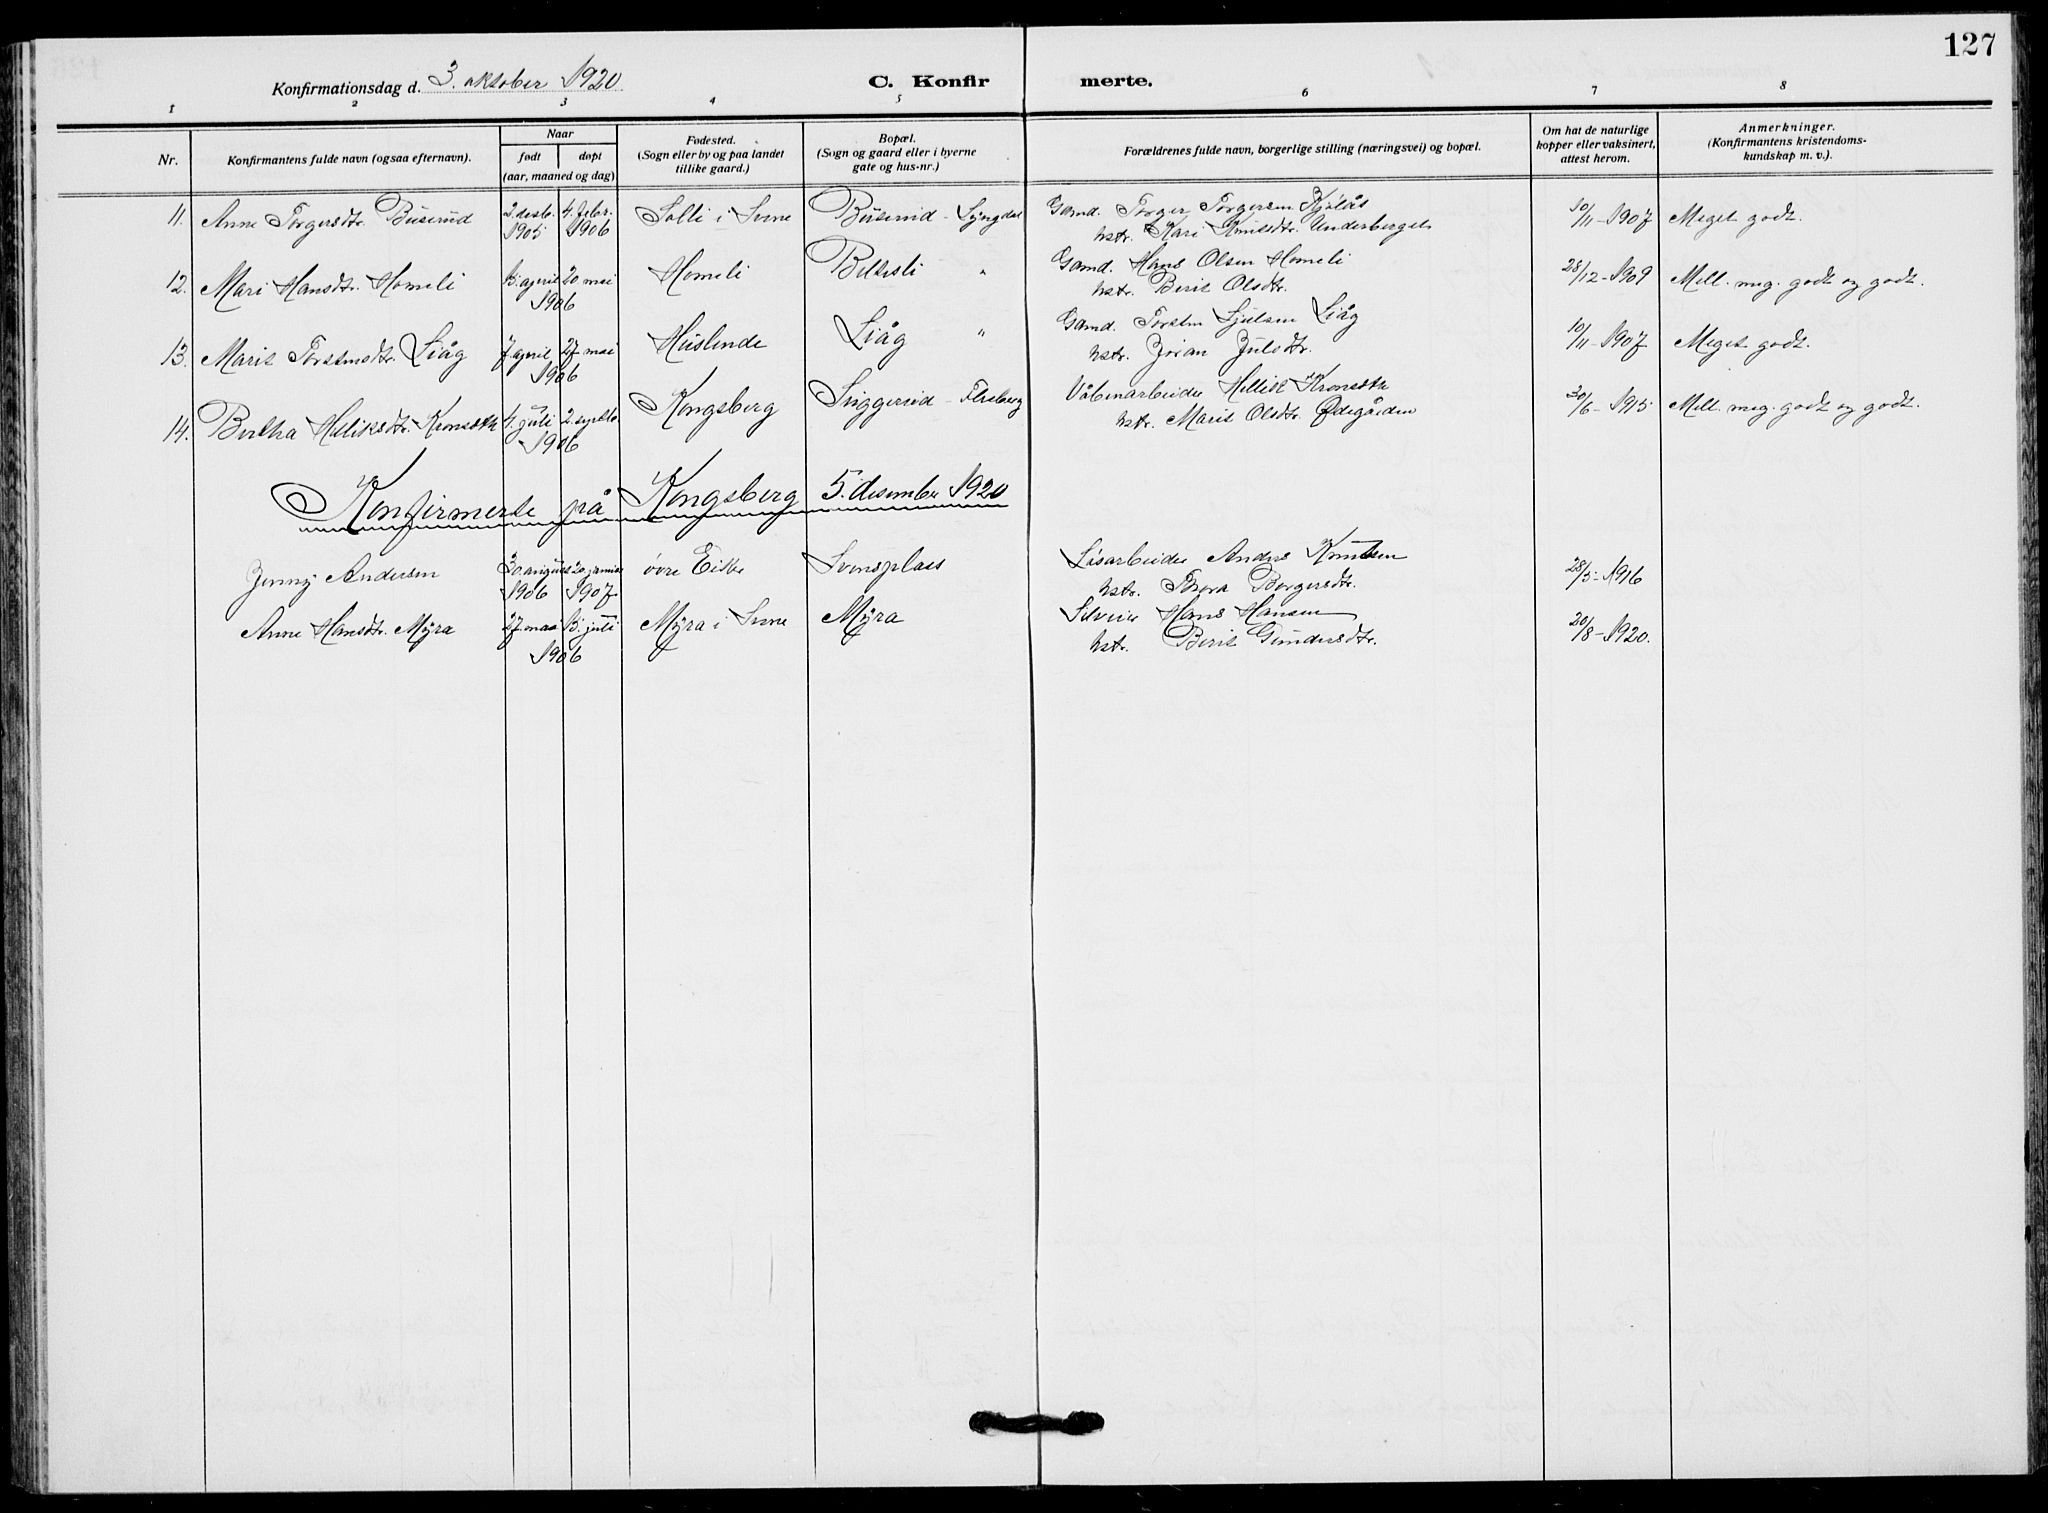 127
Konfirmationsdag d. 3. oktober 1920. C. Konfirmerte.
1 2 3 4 5 6 7 8
Nr.
Konfirmantens fulde navn (ogsaa efternavn).
Naar
født døpt
(aar, maaned og dag)
Fødested.
(Sogn eller by og paa landet
tillike gaard.)
Bopæl.
(Sogn og gaard eller i byerne
gate og hus-nr.)
Forældrenes fulde navn, borgerlige stilling (næringsvei) og bopæl.
Om hat de naturlige
kopper eller vaksinert,
attest herom.
Anmerkninger.
(Konfirmantens kristendoms-
kundskap m. v.).
11. Anne Torgersdtr. Buserud 2. desb. 4. febr. Solli i Svene Buserud - Lyngdal Gamd. Torger Torgersen 10/11-1907 Meget godt.
1905 1906 hstr. Kari Knutsdtr. Underberget
12. Mari Hansdtr. Homeli april 20. mai Homeli " Gamd. Hans Olsen Homeli 28/12-1909 Mell. meg. godt og godt.
1906 hstr. Berit Olsdtr.
13. Marit Torstensdtr. Liåg 7 april 27 mai Liåg " Gamd. Torsten Liåg 10/11-1907 Meget godt.
1906 hstr. Jøran Julsdtr.
14. Bertha Helliksdtr. 4. juli 2. septb. Kongsberg - Flesberg Våbenarbeider Hellik 30/6-1915 Mell. meg. godt og godt.
1906 hstr. Marit Olsdtr. Ødegården
Konfirmerte på Kongsberg 5. desember 1920
Jenny Andersen 30 august 20. januar øvre Eiker Svensplass Løsarbeider Anders Knutsen 28/5-1916
1906 1907 hstr. Thora Borgersdtr.
Anne Hansdtr. Myra 27 mai juli Myra i Svene Myra Hans Hansen 20/8-1920.
1906 hstr. Berit Gundersdtr.